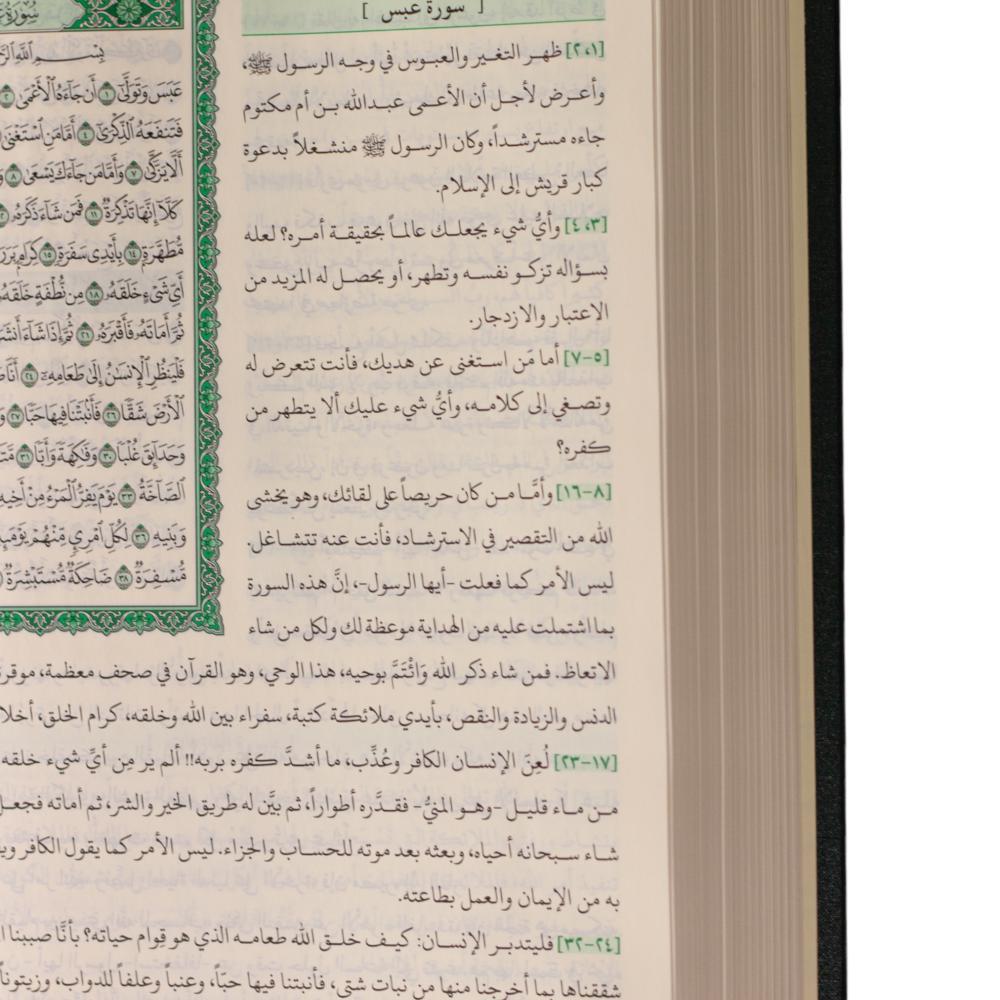 [ سورة عبس ]
[١، ٢] ظهر التغير والعبوس في وجه الرسول ﷺ،
وأعرض لأجل أن الأعمى عبدالله بن أم مكتوم
جاءه مسترشداً، وكان الرسول ﷺ منشغلاً بدعوة
كبار قريش إلى الإسلام.
[٣، ٤] وأيُّ شيء يجعلك عالماً بحقيقة أمره؟ لعله
بسؤاله تزكو نفسه وتطهر، أو يحصل له المزيد من
الاعتبار والازدجار.
[٥-٧] أما مَن استغنى عن هديك، فأنت تتعرض له
وتصغي إلى كلامه، وأيُّ شيء عليك ألا يتطهر من
كفره؟
[٨-١٦] وأمَّا من كان حريصاً على لقائك، وهو يخشى
الله من التقصير في الاسترشاد، فأنت عنه تتشاغل.
ليس الأمر كما فعلت -أيها الرسول-، إنَّ هذه السورة
بما اشتملت عليه من الهداية موعظة لك ولكل من شاء
الاتعاظ. فمن شاء ذكر الله وَائْتَمَّ بوحيه، هذا الوحي، وهو القرآن في صحف معظمة، موقر
الدنس والزيادة والنقص، بأيدي ملائكة كتبة، سفراء بين الله وخلقه، كرام الخلق، أخلا
[١٧-٢٣] لُعِنَ الإنسان الكافر وعُذِّب، ما أشدَّ كفره بربه!! ألم ير مِن أيِّ شيء خلقه
من ماء قليل -وهو المنيُّ- فقدَّره أطواراً، ثم بيَّن له طريق الخير والشر، ثم أماته فجعل
شاء سبحانه أحياه، وبعثه بعد موته للحساب والجزاء. ليس الأمر كما يقول الكافر ويف
به من الإيمان والعمل بطاعته.
[٢٤-٣٢] فليتدبر الإنسان: كيف خلق الله طعامه الذي هو قِوام حياته؟ بأنَّا صببنا ا
شققناها بما أخرجنا منها من نبات شتى، فأنبتنا فيها حبّاً، وعنباً وعلفاً للدواب، وزيتوناً
سُورَةُ
بِسْمِ ٱللَّهِ
عَبَسَ وَتَوَلَّىٰٓ ١ أَن جَآءَهُ ٱلْأَعْمَىٰ ٢
فَتَنفَعَهُ ٱلذِّكْرَىٰٓ ٤ أَمَّا مَنِ ٱسْتَغْنَىٰ
أَلَّا يَزَّكَّىٰ ٧ وَأَمَّا مَن جَآءَكَ يَسْعَىٰ ٨
كَلَّآ إِنَّهَا تَذْكِرَةٌ ١١ فَمَن شَآءَ ذَكَرَهُۥ
مُّطَهَّرَةٍۭ ١٤ بِأَيْدِى سَفَرَةٍ ١٥ كِرَامٍۭ بَرَرَ
أَىِّ شَىْءٍ خَلَقَهُۥ ١٨ مِن نُّطْفَةٍ خَلَقَهُۥ
ثُمَّ أَمَاتَهُۥ فَأَقْبَرَهُۥ ٢١ ثُمَّ إِذَا شَآءَ أَنشَرَ
فَلْيَنظُرِ ٱلْإِنسَٰنُ إِلَىٰ طَعَامِهِۦٓ ٢٤ أَنَّا
ٱلْأَرْضَ شَقًّا ٢٦ فَأَنۢبَتْنَا فِيهَا حَبًّا ٢٧
وَحَدَآئِقَ غُلْبًا ٣٠ وَفَٰكِهَةً وَأَبًّا ٣١
ٱلصَّآخَّةُ ٣٣ يَوْمَ يَفِرُّ ٱلْمَرْءُ مِنْ أَخِيهِ
وَبَنِيهِ ٣٦ لِكُلِّ ٱمْرِئٍ مِّنْهُمْ يَوْمَئِذٍ
مُّسْفِرَةٌ ٣٨ ضَاحِكَةٌ مُّسْتَبْشِرَةٌ